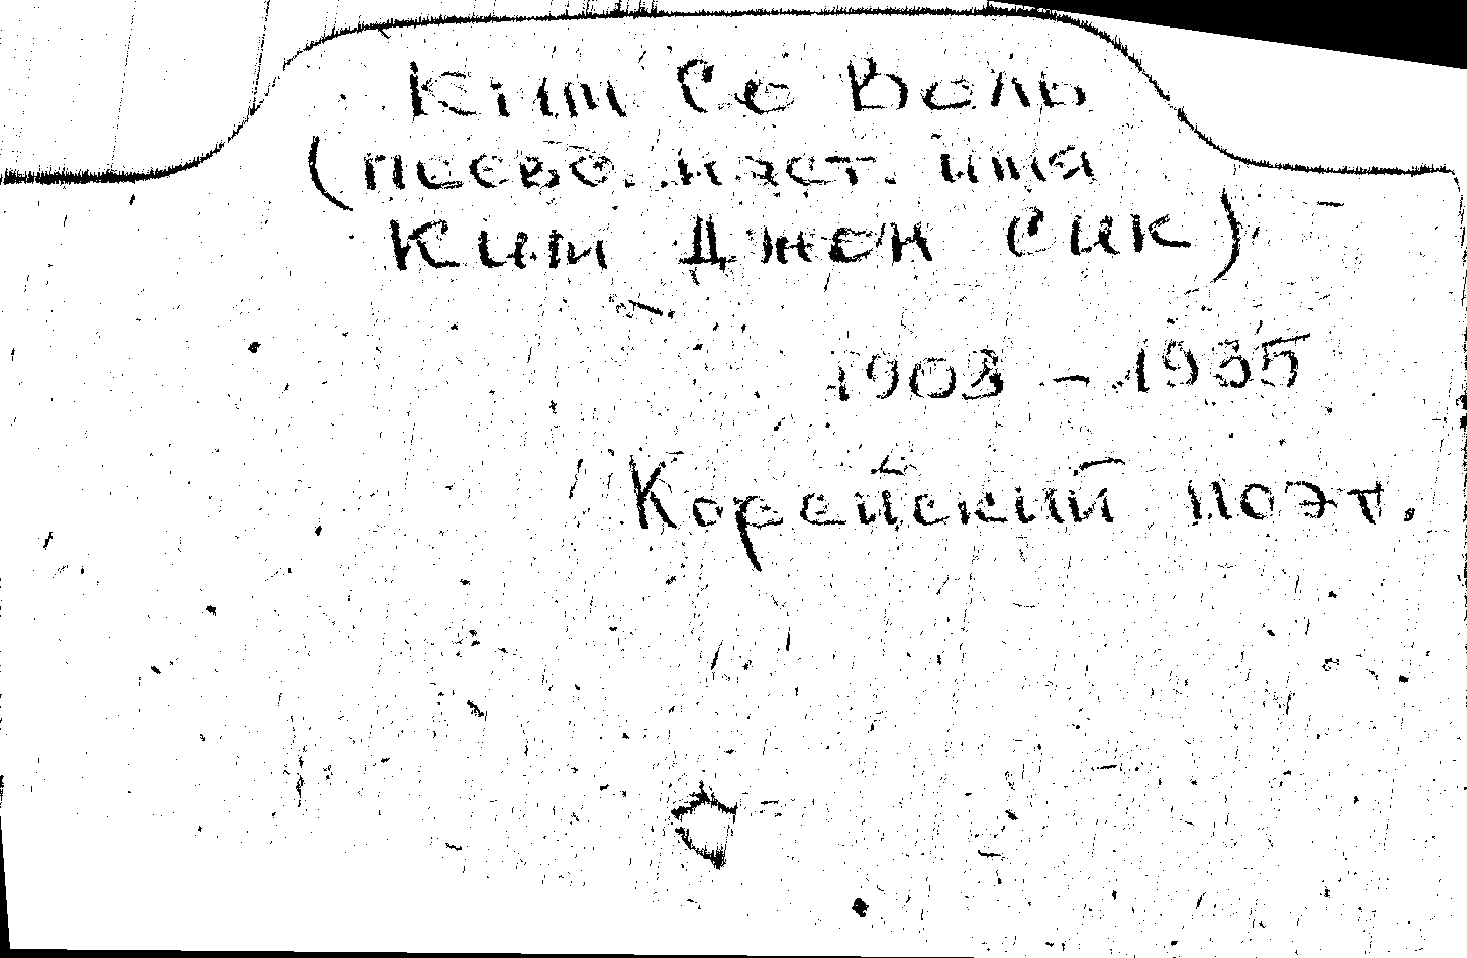 Ким Со Воль
(псевд. наст. имя
Ким Джон Сик)
1903 - 1935
Корейский поэт.